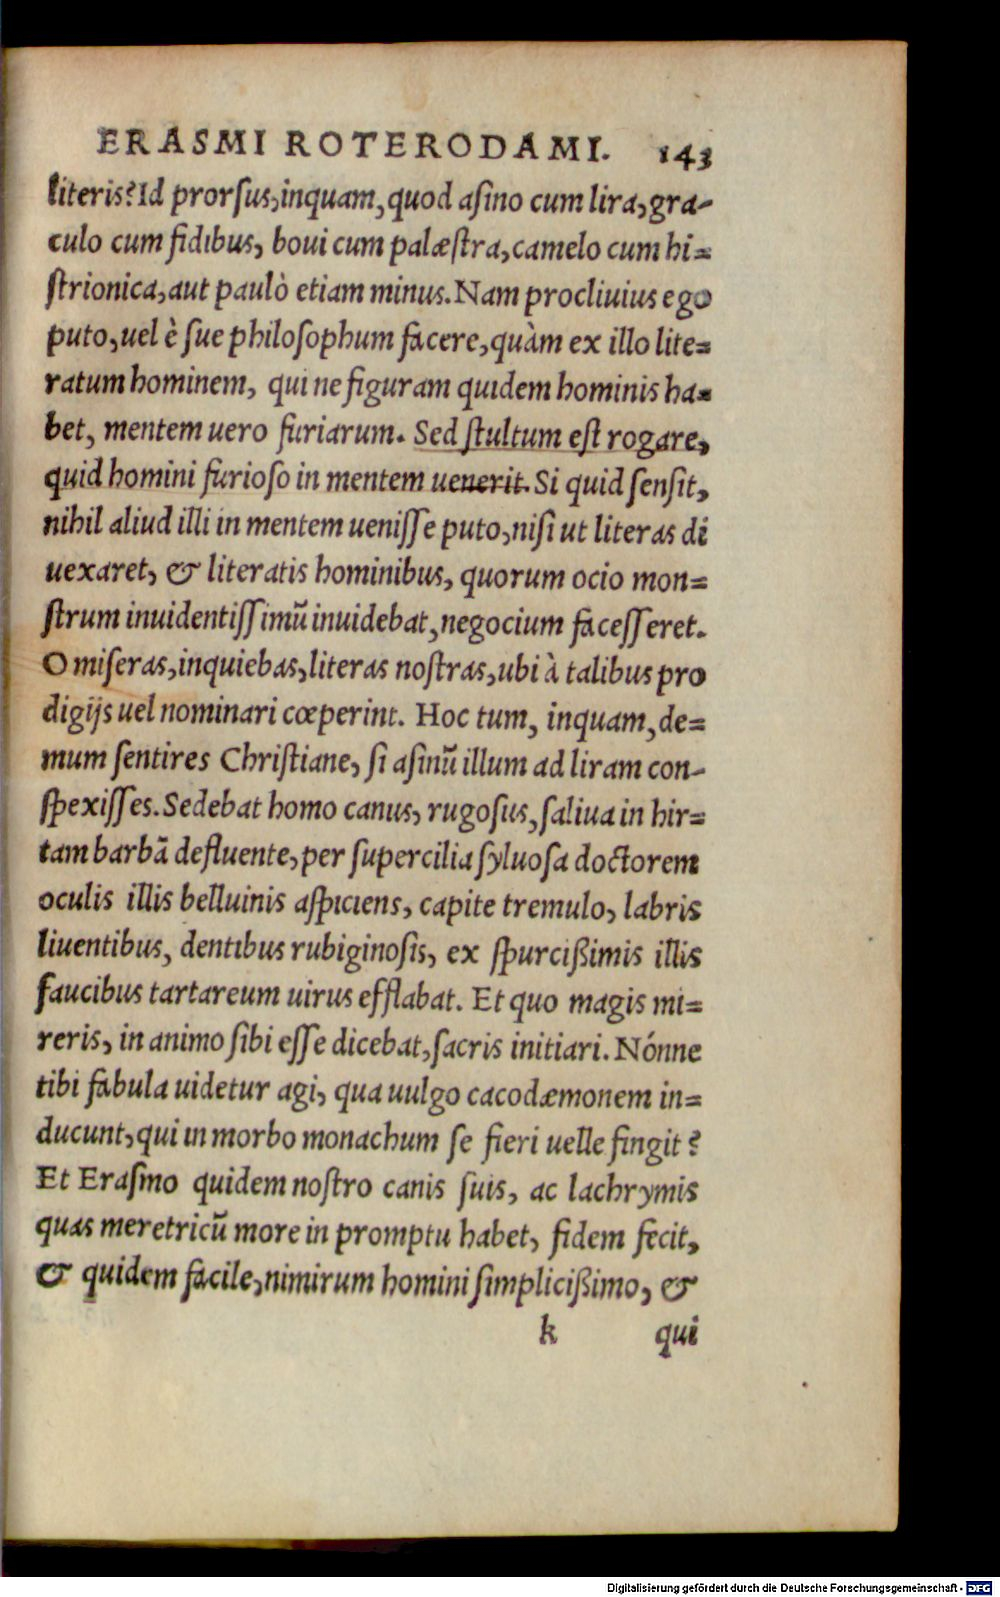 ERASMI ROTERODAMI. 143
literis? Id prorſus, inquam, quod aſino cum lira, gra-
culo cum fidibus, boui cum palæſtra, camelo cum hi=
ſtrionica, aut paulò etiam minus. Nam procliuius ego
puto, uel è ſue philoſophum facere, quàm ex illo lite=
ratum hominem, qui ne figuram quidem hominis ha=
bet, mentem uero furiarum. Sed ſtultum eſt rogare,
quid homini furioſo in mentem uenerit. Si quid ſenſit,
nihil aliud illi in mentem ueniſſe puto, niſi ut literas di
uexaret, & literatis hominibus, quorum ocio mon=
ſtrum inuidentiſſimũ inuidebat, negocium faceſſeret.
O miſeras, inquiebas, literas noſtras, ubi à talibus pro
digijs uel nominari cœperint. Hoc tum, inquam, de=
mum ſentires Chriſtiane, ſi aſinũ illum ad liram con-
ſpexiſſes. Sedebat homo canus, rugoſus, ſaliua in hir=
tam barbã defluente, per ſupercilia ſyluoſa doctorem
oculis illis belluinis aſpiciens, capite tremulo, labris
liuentibus, dentibus rubiginoſis, ex ſpurcißimis illis
faucibus tartareum uirus efflabat. Et quo magis mi=
reris, in animo ſibi eſſe dicebat, ſacris initiari. Nónne
tibi fabula uidetur agi, qua uulgo cacodæmonem in=
ducunt, qui in morbo monachum ſe fieri uelle fingit?
Et Eraſmo quidem noſtro canis ſuis, ac lachrymis
quas meretricũ more in promptu habet, fidem fecit,
& quidem facile, nimirum homini ſimplicißimo, &
k qui
Digitalisierung gefördert durch die Deutsche Forschungsgemeinschaft - DFG